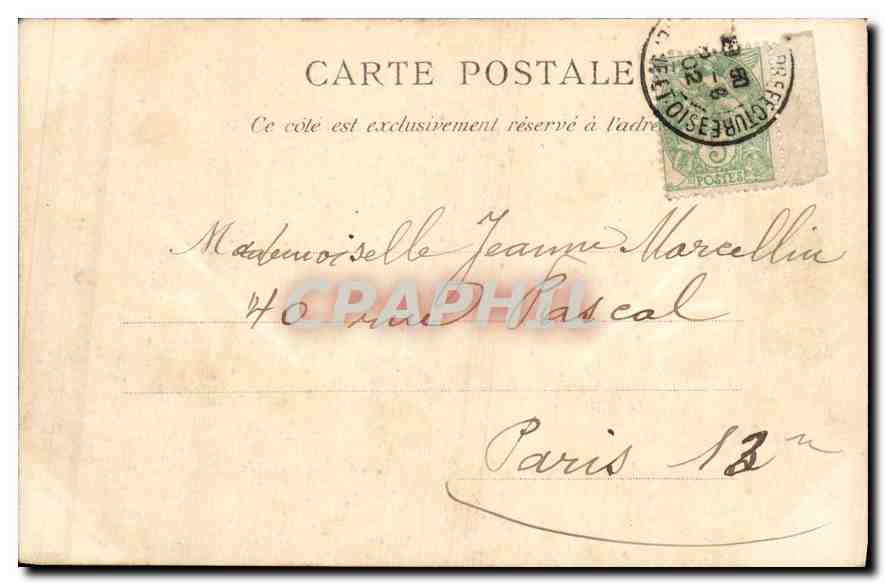 CARTE POSTALE
Ce côté est exclusivement réservé à l'adre
02
POSTES
Mademoiselle Jeanne Marcellin
40 rue Pascal
CPAPHIL
Paris 13